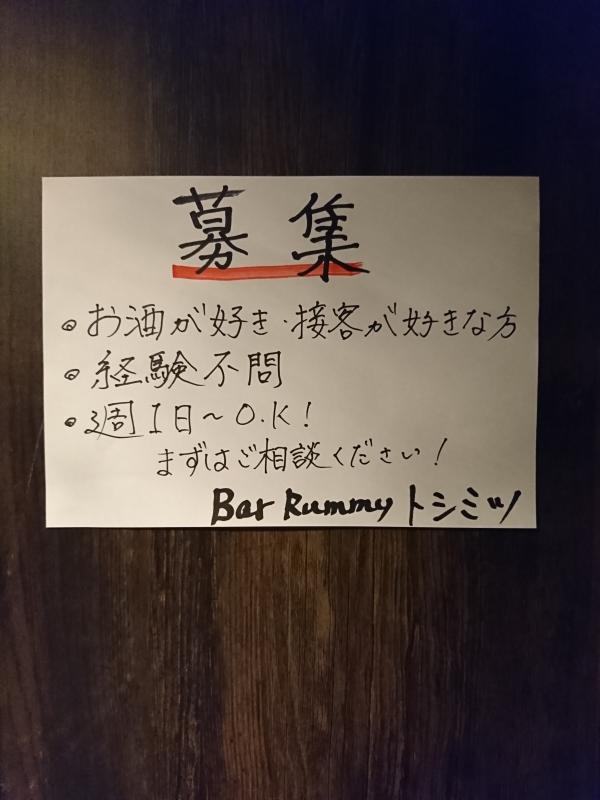 募集
・お酒が好き・接客が好きな方
・経験不問
・週1日～O.K!
まずはご相談ください!
Bar Rummy トシミツ